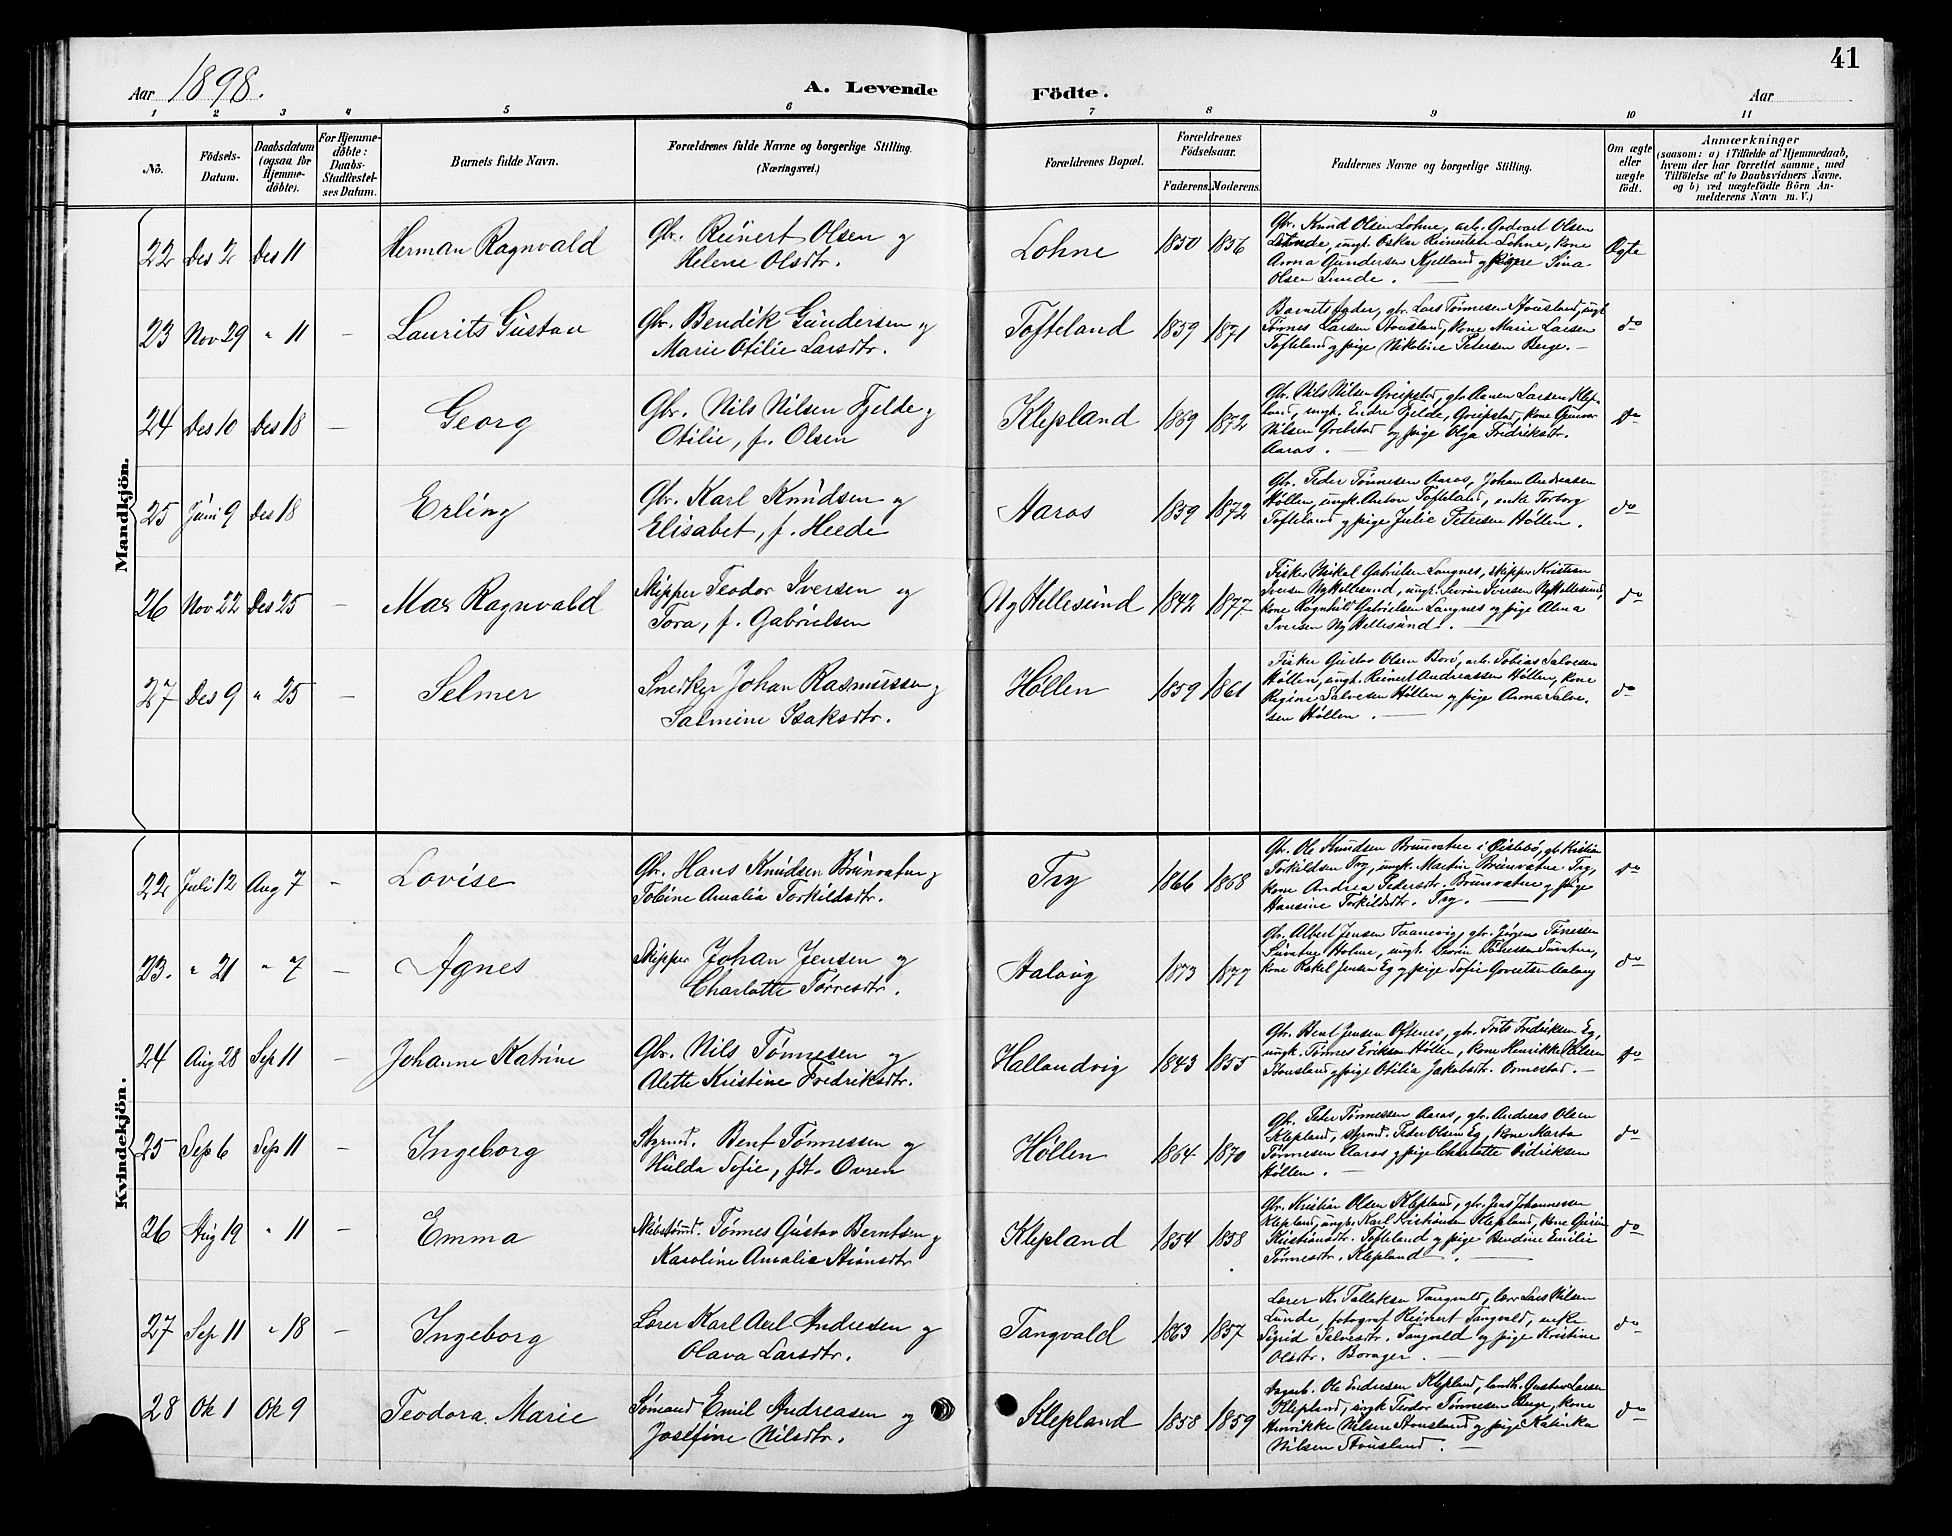 41
Aar 1898.
A. Levende Födte.
Aar
1 2 3 4 5 6 7 8 9 10 11
No.
Födsels-Datum.
Daabsdatum (ogsaa for Hjemme-döbte).
For Hjemme-döbte: Daabs-Stadfæstel-ses Datum.
Barnets fulde Navn.
Forældrenes fulde Navne og borgerlige Stilling. (Næringsvei.)
Forældrenes Bopæl.
Forældrenes Födselsaar.
Faderens. Moderens.
Faddernes Navne og borgerlige Stilling.
Om ægte eller uægte födt.
Anmærkninger
(saasom: a) i Tilfælde af Hjemmedaab,
hvem der har forrettet samme, med
Tilföielse af to Daabsvidners Navne,
og b) ved uægtefödte Börn An-
melderens Navn m. V.)
Mandkjön.
22 Des 2 Des 11 Herman Ragnvald
Gbr. Reinert Olsen og
Helene Olsdtr.
Lohne 1850 1856
Gbr. Knud Olsen Lohne, arb. Godvart Olsen
Lunde, ungk. Oskar Reinertsen Lohne, kone
Anna Gundersen Kjelland og pige Sina
Olsen Lunde. —
Ægte
23 Nov 29 " 11 — Laurits Gustav
Gbr. Bendik Gundersen og
Marie Otilie Larsdtr.
Tofteland 1859 1871
Barnets fader, gbr. Lars Tønnesen Stousland, ungk.
Tønnes Larsen Stousland, kone Marie Larsen
Tofteland og pige Nikoline Petersen Berge. —
do
24 Des 10 Des 18 — Georg
Gbr. Nils Nilsen Fjelde og
Otilie, f. Olsen
Klepland 1869 1872
Gbr. Nils Nilsen Greipstad, gbr. Aanen Larsen Klep-
land, ungk. Endre Fjelde, Greipstad, kone Gunvor
Nilsen Grebstad og pige Olga Fredriksdtr.
Aaros. —
do
25 Juni 9 Des 18 Erling
Gbr. Karl Knudsen og
Elisabet, f. Heede
Aaros 1859 1872
Gbr. Peder Tønnesen Aaros, Johan Andreasen
Høllen, ungk. Anton Tofteland, enke Torborg
Tofteland og pige Julie Petersen Høllen.
do
26 Nov 22 Des 25 — Max Ragnvald
Skipper Teodor Iversen og
Tora, f. Gabrielsen
Ny Hellesund 1842 1877
Fisker Mikal Gabrielsen Langnes, skipper Kristian
Iversen Ny Hellesund, ungk. Severin Iversen Ny Hellesund,
kone Ragnhild Gabrielsen Langnes og pige Alma
Iversen Ny Hellesund. —
do
27 Des 9 " 25 — Selmer
Snedker Johan Rasmussen og
Salmine Isaksdtr.
Høllen 1859 1861
Fisker Gustav Olsen Borø, arb. Tobias Salvesen
Høllen, ungk. Reinert Andreassen Høllen, kone
Regine Salvesen Høllen og pige Anna Salve-
sen Høllen. —
do
Kvindekjön.
22 Juli 12 Aug 7 — Lovise
Gbr. Hans Knudsen Brunvatne og
Tobine Amalia Torkildsdtr.
Try 1866 1868
Gbr. Ole Knudsen Brunvatne i Øislebø, gbr. Kristian
Torkildsen Try, ungk. Martin Brunvatne Try,
kone Andrea Pedersdtr. Brunvatne og pige
Hansine Torkildsdtr. Try. —
do
23. " 21 " 7 — Agnes
Skipper Johan Jensen og
Charlotte Tørresdtr.
Aalvig 1873 1877
Gbr. Albert Jensen Taanevig, gbr. Jørgen Tønessen
kone Rakel Jensen Eg og pige Sofie Govertsen Aalvig
do
24 Aug 28 Sep 11 — Johanne Katrine
Gbr. Nils Tønnesen og
Alette Kristine Fredriksdtr.
Hallandvig 1843 1855
Gbr. Bent Jensen Oftenes, gbr. Frits Fredriksen Eg,
ungk. Tønnes Eriksen Høllen, kone Henrikke Nilsen
Stousland og pige Otilia Jakobsdtr. Ormestad. —
do
25 Sep 6 Sep 11 — Ingeborg
Styrmd. Bent Tønnessen og
Hulda Sofie, fdt. Ovren
Høllen 1864 1870
Gbr. Peter Tønnessen Aaros, gbr. Andreas Olsen
Klepland, styrmd. Peder Olsen Eg, kone Marta
Tønnesen Aaros og pige Charlotte Didriksen
Høllen. —
do
26 Aug 19 " 11 — Emma
Skibstømd. Tønnes Gustav Berntsen og
Karoline Amalie Stiansdtr
Klepland 1854 1858
Gbr. Kristian Olsen Klepland, gbr. Jens Johannessen
Klepland, ungk. Karl Kristiansen Klepland, kone Gurine
Kristiansdtr. Tofteland og pige Bendine Emilie
Tønnesdtr. Klepland. —
do
27 Sep 11 " 18 — Ingeborg
Lærer Karl Axel Andresen og
Olava Larsdtr.
Tangvald 1863 1857
Lærer K. Tallaksen Tangvald, lærer Lars Nilsen
Lunde, fotograf Reinert Tangvald, enke
Sigrid Salvesdtr. Tangvald og pige Kristine
Olsdtr. Borager. —
do
28 Ok 1 Ok 9 Teodora Marie
Sømand Emil Andreasen og
Josefine Nilsdtr.
Klepland 1858 1859
Dagarb. Ole Endresen Klepland, landh. Gustav Larsen
Klepland, ungk. Teodor Tønnesen Berge, kone
Henrikke Nilsen Stousland og pige Katinka
Nilsen Stousland. —
do